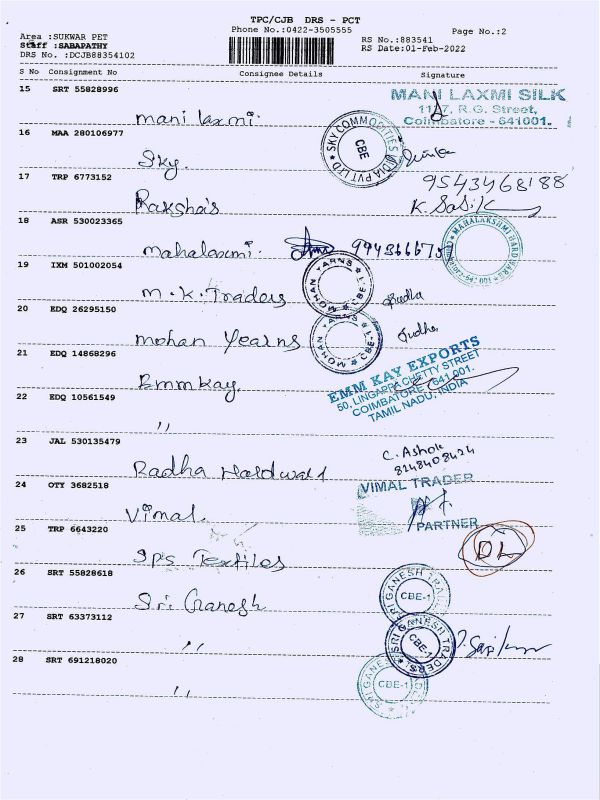 TPC/CJB DRS - PCT
Phone No.:0422-3505555
Page No.:2
Area :SUKWAR PET
Staff :SABAPATHY
DRS No. :DCJB88354102
RS No.:883541
RS Date:01-Feb-2022
S No Consignment No Consignee Details Signature
15 SRT 55828996
mani laxmi.
MANI LAXMI SILK
11/7, R.G. Street,
Coimbatore - 641001.
16 MAA 280106977
Sky.
SKY COMMODITIES INDIA PVT LTD
CBE
17 TRP 6773152
Raksha's
9543468188
K. Sasik
18 ASR 530023365
mahalaxmi.
MAHALAKSHMI HARDWARE
19 IXM 501002054
M.K. Traders
MOHAN YARNS CBE-1
20 EDQ 26295150
mohan Yearns
MOHAN YARNS CBE-1
21 EDQ 14868296
Emmkay.
EMM KAY EXPORTS
50, LINGAPPA CHETTY STREET
COIMBATORE 641 001.
TAMIL NADU, INDIA
22 EDQ 10561549
"
23 JAL 530135479
Radha Hardward
C. Ashok
8148408424
24 OTY 3682518
Vimal.
VIMAL TRADER
PARTNER
25 TRP 6643220
Sps Textiles
26 SRT 55828618
Sri Ganesh
SRI GANESH TRADERS
CBE-1
27 SRT 63373112
"
SRI GANESH TRADERS
CBE-1
28 SRT 691218020
"
SRI GANESH
CBE-1